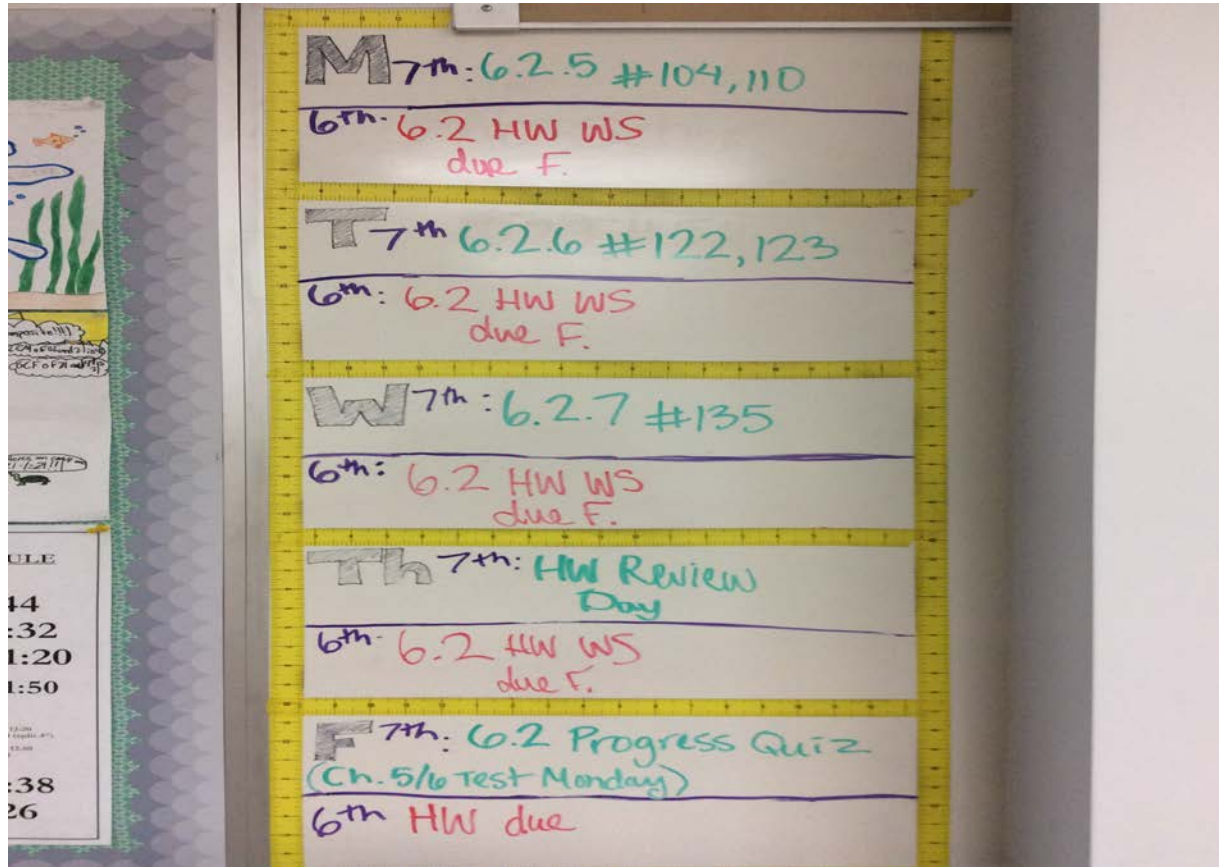 M 7th: 6.2.5 #104, 110
6th. 6.2 HW WS
due F.
T 7th 6.2.6 #122, 123
6th: 6.2 HW WS
due F.
W 7th: 6.2.7 #135
6th: 6.2 HW WS
due F.
Th 7th: HW Review
Day
6th. 6.2 HW WS
due F.
F 7th: 6.2 Progress Quiz
(Ch. 5/6 Test Monday)
6th HW due
ULE
:32
1:20
1:50
:38